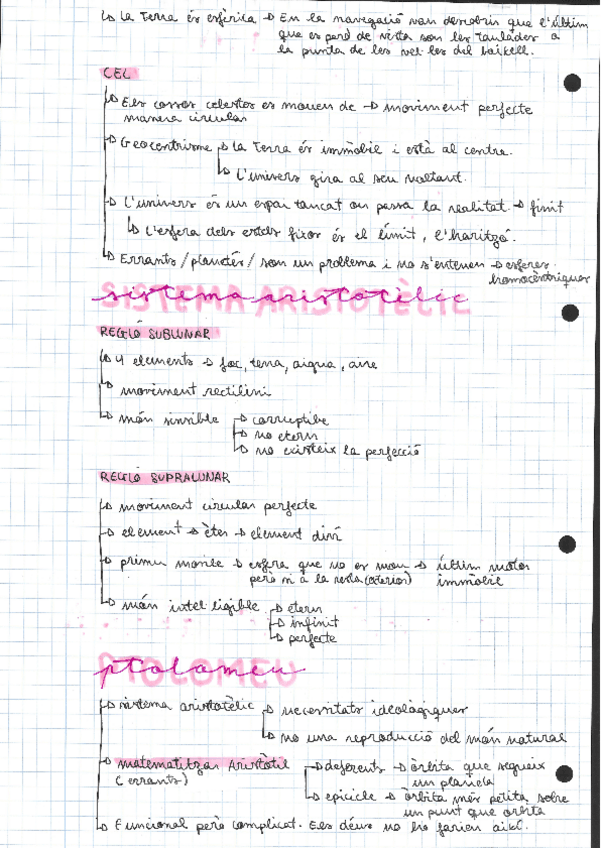 ↳ La Terra és esfèrica → En la navegació van descobrir que l'últim
que es perd de vista son les taulades a
la punta de les vel·les del vaixell.
CEL
↳ Els cossos celestes es mouen de → moviment perfecte
manera circular
↳ Geocentrisme ↳ la Terra és immòbil i està al centre.
↳ L'univers gira al seu voltant.
↳ L'univers és un espai tancat on passa la realitat. → finit
↳ L'esfera dels estels fixos és el límit, l'horitzó.
↳ Errants/planetes/ son un problema i no s'entenen → esferes
homocèntriques
SISTEMA ARISTOTÈLIC
REGIÓ SUBLUNAR
↳ 4 elements → foc, terra, aigua, aire
↳ moviment rectilini
↳ món sensible → corruptible
→ no etern
→ no existeix la perfecció
REGIÓ SUPRALUNAR
↳ moviment circular perfecte
→ element → èter → element diví
→ primer motor → esfera que no es mou → últim motor
però sí a la resta (exterior) immòbil
↳ món intel·ligible → etern
→ infinit
→ perfecte
PTOLOMEU
↳ sistema aristotèlic → necessitats ideològiques
↳ no una reproducció del món natural
→ matematitzar Aristòtil → deferents → òrbita que segueix
(errants) un planeta
↳ epicicle → òrbita més petita sobre
un punt que orbita
↳ Funcional però complicat. Els déus no ho farien així.